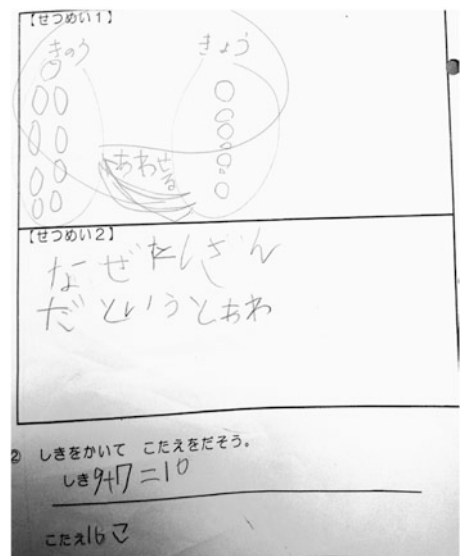 【せつめい1】
きのう
きょう
あわせる
【せつめい2】
なぜたしざん
だというとあわ
② しきをかいて こたえをだそう。
しき9+7=16
こたえ16こ